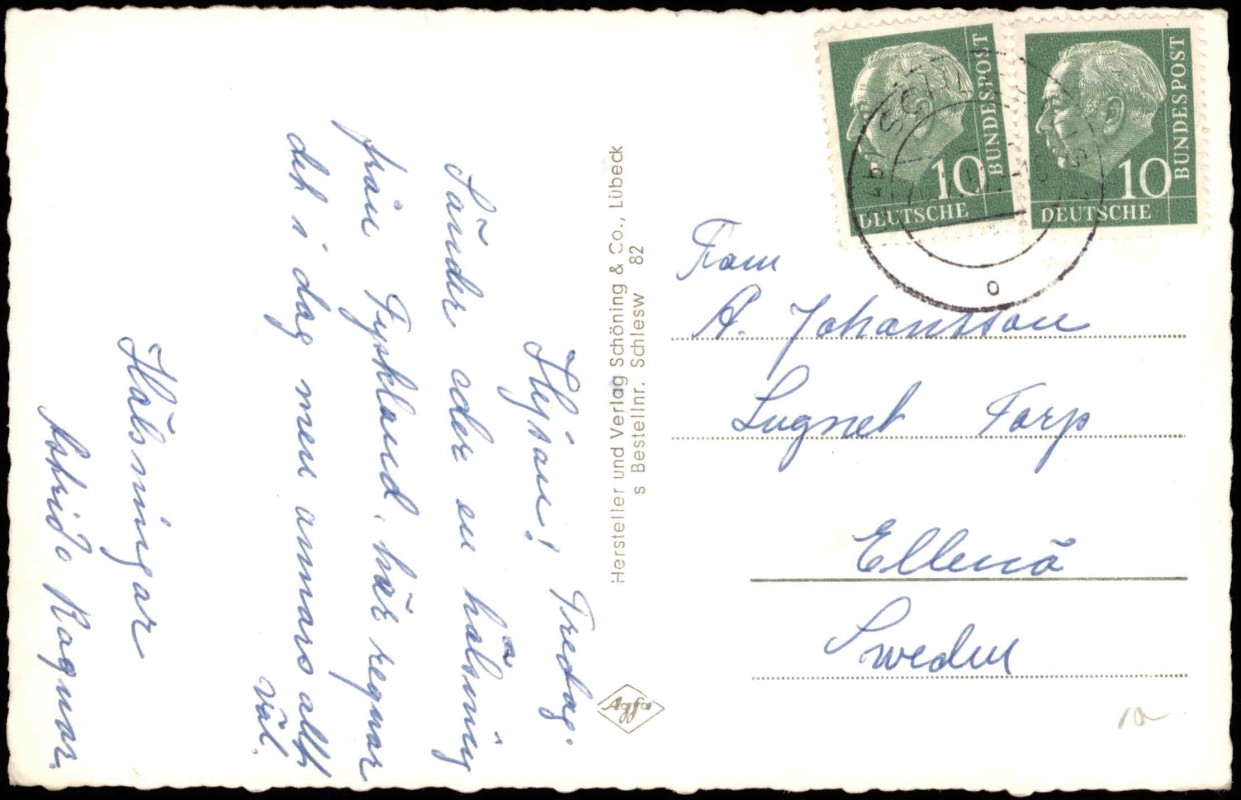 Hejsan! Fredag.
Sänder eder en hälsning
från Tyskland, här regnar
det i dag men annars allt
väl.
Hälsningar
Astrid o Ragnar.
Hersteller und Verlag Schöning & Co., Lübeck
s Bestellnr. Schlesw 82
Agfa
DEUTSCHE
BUNDESPOST
10
DEUTSCHE
BUNDESPOST
10
Fam
A. Johansson
Lugnet Torp
Ellenö
Sweden
10